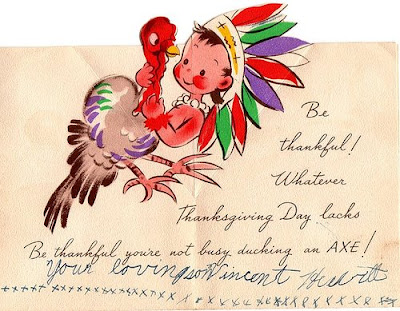 Be
thankful!
Whatever
Thanksgiving Day lacks
Be thankful you're not busy ducking an AXE!
Your loving son Vincent